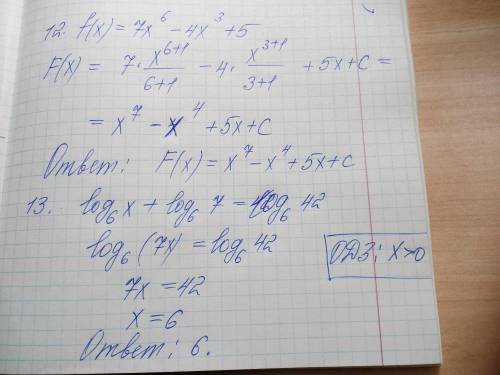 12. f(x) = 7x⁶ − 4x³ + 5
F(x) = 7 · x⁶⁺¹/(6+1) − 4 · x³⁺¹/(3+1) + 5x + C =
= x⁷ − x⁴ + 5x + C
Ответ: F(x) = x⁷ − x⁴ + 5x + C
13. log₆ x + log₆ 7 = log₆ 42
log₆ (7x) = log₆ 42
ОДЗ: x>0
7x = 42
x = 6
Ответ: 6.